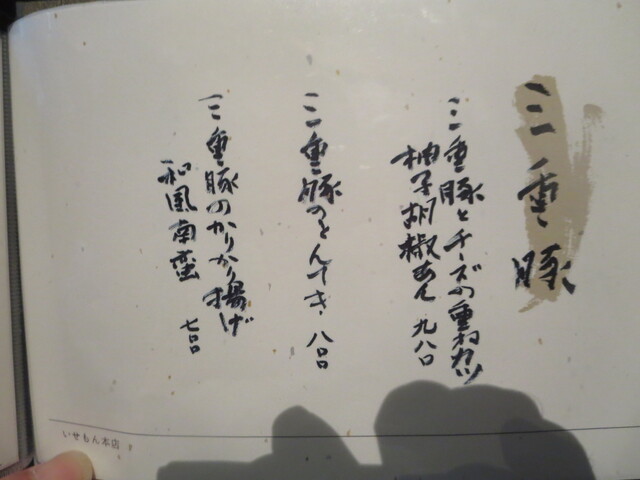 三重豚
三重豚とチーズの重ねカツ
柚子胡椒あん 九八〇
三重豚のとんてき 八〇〇
三重豚のかりかり揚げ
和風南蛮 七〇〇
いせもん本店